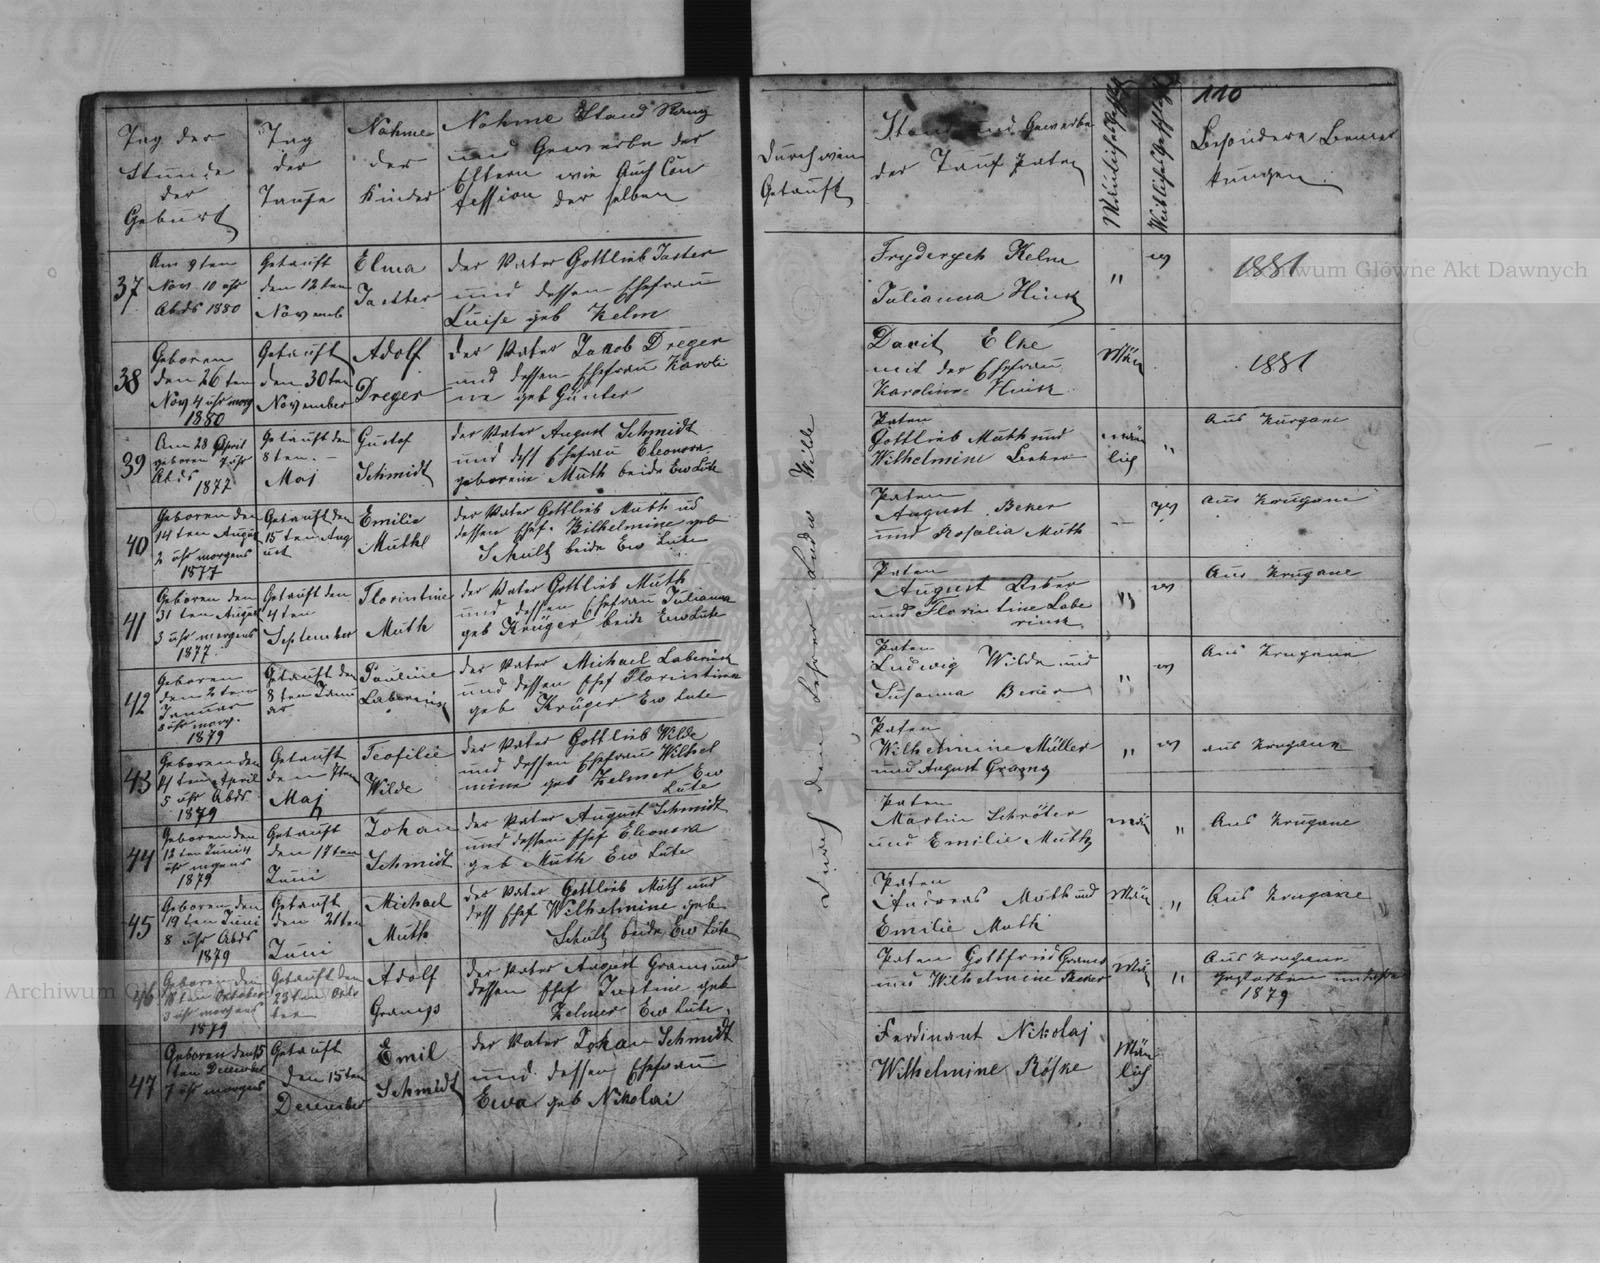 110
Tag der
Stunde
der
Geburt
Tag
der
Taufe
Nahme
der
Kinder
Nahme Stand Rang
und Gewerbe der
Eltern wie Auch Con
fession der selben
Durch wem
Getauft
Stand und Gewerbe
der Tauf Paten
Mänliche
Weibliche
Besondere Bemer
kungen
Durch den Lehrer Ludw Wilde
37
Am 9ten
Nov. 10 uhr
Abds 1880
Getauft
den 12ten
Novemb
Elma
Jaster
der Vater Gottlieb Jaster
und dessen Ehefrau
Luise geb Kelm
Frydersych Kelm
Julianna Hink
"
w
1881
38
Geboren
den 26ten
Nov 4 uhr morg
1880
Getauft
den 30ten
November
Adolf
Dreger
der Vater Jakob Dreger
und dessen Ehefrau Karoli
ne geb Günter
Davit Elke
mit der Ehefrau
Karoline Hink
Män
1881
39
Am 28 April
geboren 7 uhr
Abds
1877
Getauft den
8ten
Maj
Gustof
Schmidt
der Vater August Schmidt
und dess Ehefrau Eleonora
geborene Muth beide Ew Lute
Paten
Gottlieb Muth und
Wilhelmine Beker
män
lich
"
Aus Kurgane
40
Geboren den
14ten August
2 uhr morgens
1877
Getauft den
15ten Aug
ust
Emilie
Muthl
der Vater Gottlieb Muth ud
dessen Ehef. Wilhelmine geb
Schultz beide Ew Lute
Paten
August Beker
und Rosalia Muth
w
Aus Krugane
41
Geboren den
31ten August
3 uhr morgens
1877
Getauft den
4ten
September
Florintine
Muth
der Vater Gottlieb Muth
und dessen Ehefrau Julianna
geb Krüger beide Ew Lute
Paten
August Beker
und Florintine Labe
rink
"
w
Aus Krugane
42
Geboren
den 2ten
Januar
uhr morg.
1879
Getauft den
8ten Janu
ar
Pauline
Laberink
der Vater Michael Laberink
und dessen Ehef Florintina
geb Krüger Ew Lute
Paten
Ludwig Wilde und
Susanna Beker
"
w
Aus Krugane
43
Geboren den
14ten April
5 uhr Abds
1879
Getauft
den 7ten
Maj
Teofilie
Wilde
der Vater Gottlieb Wilde
und dessen Ehefrau Wilhel
mine geb Kelmer Ew
Lute
Paten
Wilhelmine Müller
und August Grams
"
w
aus Krugane
44
Geboren den
12ten Juni 4
uhr mgens
1879
Getauft
den 17ten
Juni
Johan
Schmidt
der Vater August Schmidt
und dessen Ehef Eleonora
geb Muth Ew Lute
Paten
Martin Schröter
und Emilie Muth
män
"
Aus Krugane
45
Geboren den
19ten Juni
8 uhr Abds
1879
Getauft
den 21ten
Juni
Michael
Muth
der Vater Gottlieb Muth und
dess Ehef Wilhelmine geb
Schultz beide Ew Lute
Paten
Andreas Muth und
Emilie Muth
Män
"
Aus Krugane
46
Geboren den
18ten October
3 uhr morgens
1879
Getauft den
23ten Octo
ber
Adolf
Grams
der Vater August Grams und
dessen Ehef Justine geb
Kelmer Ew Lute
Paten Gottfried Grams
und Wilhelmine Beker
Män
"
Aus Krugane
gestorben
1879
47
Geboren den 15
ten December
7 uhr morgens
Getauft
den 15ten
December
Emil
Schmidt
der Vater Johan Schmidt
und dessen Ehefrau
Ewa geb Nikolai
Ferdinant Nikolaj
Wilhelmine Röske
Män
lich
Archiwum Główne Akt Dawnych
Archiwum Główne Akt Dawnych